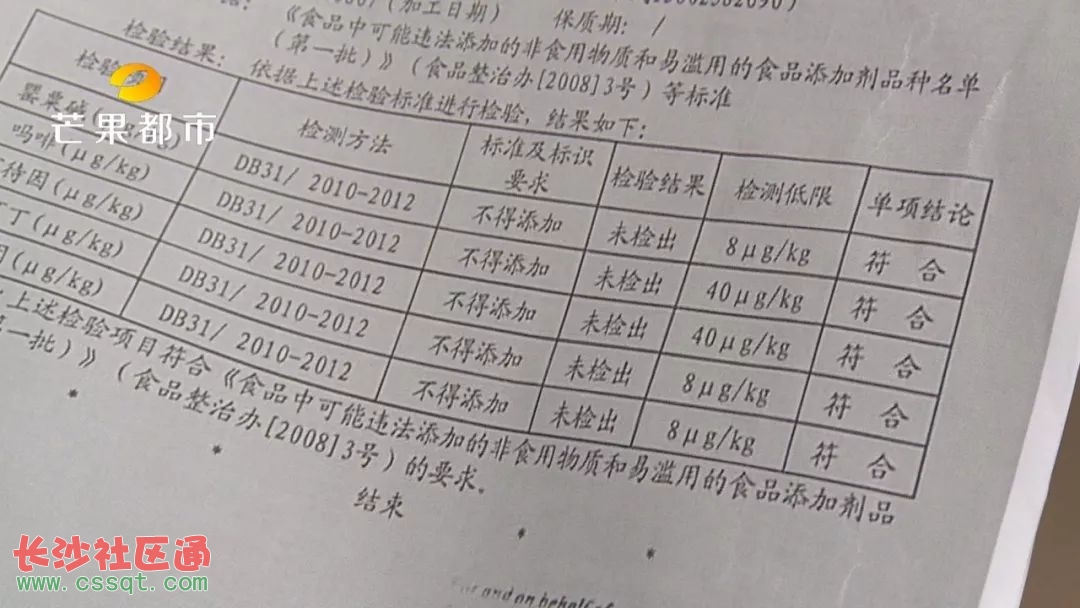 (加工日期)
保质期： /
《食品中可能违法添加的非食用物质和易滥用的食品添加剂品种名单
（第一批）》（食品整治办[2008]3号）等标准
检验结果： 依据上述检验标准进行检验，结果如下：
检验 检测方法 标准及标识要求 检验结果 检测低限 单项结论
罂粟碱 DB31/ 2010-2012 不得添加 未检出 8μg/kg 符 合
吗啡(μg/kg) DB31/ 2010-2012 不得添加 未检出 40μg/kg 符 合
待因(μg/kg) DB31/ 2010-2012 不得添加 未检出 40μg/kg 符 合
丁(μg/kg) DB31/ 2010-2012 不得添加 未检出 8μg/kg 符 合
(μg/kg) DB31/ 2010-2012 不得添加 未检出 8μg/kg 符 合
上述检验项目符合《食品中可能违法添加的非食用物质和易滥用的食品添加剂品
一批）》（食品整治办[2008]3号）的要求。
结束
* * * *
For and on behalf of
芒果都市
长沙社区通
www.cssqt.com